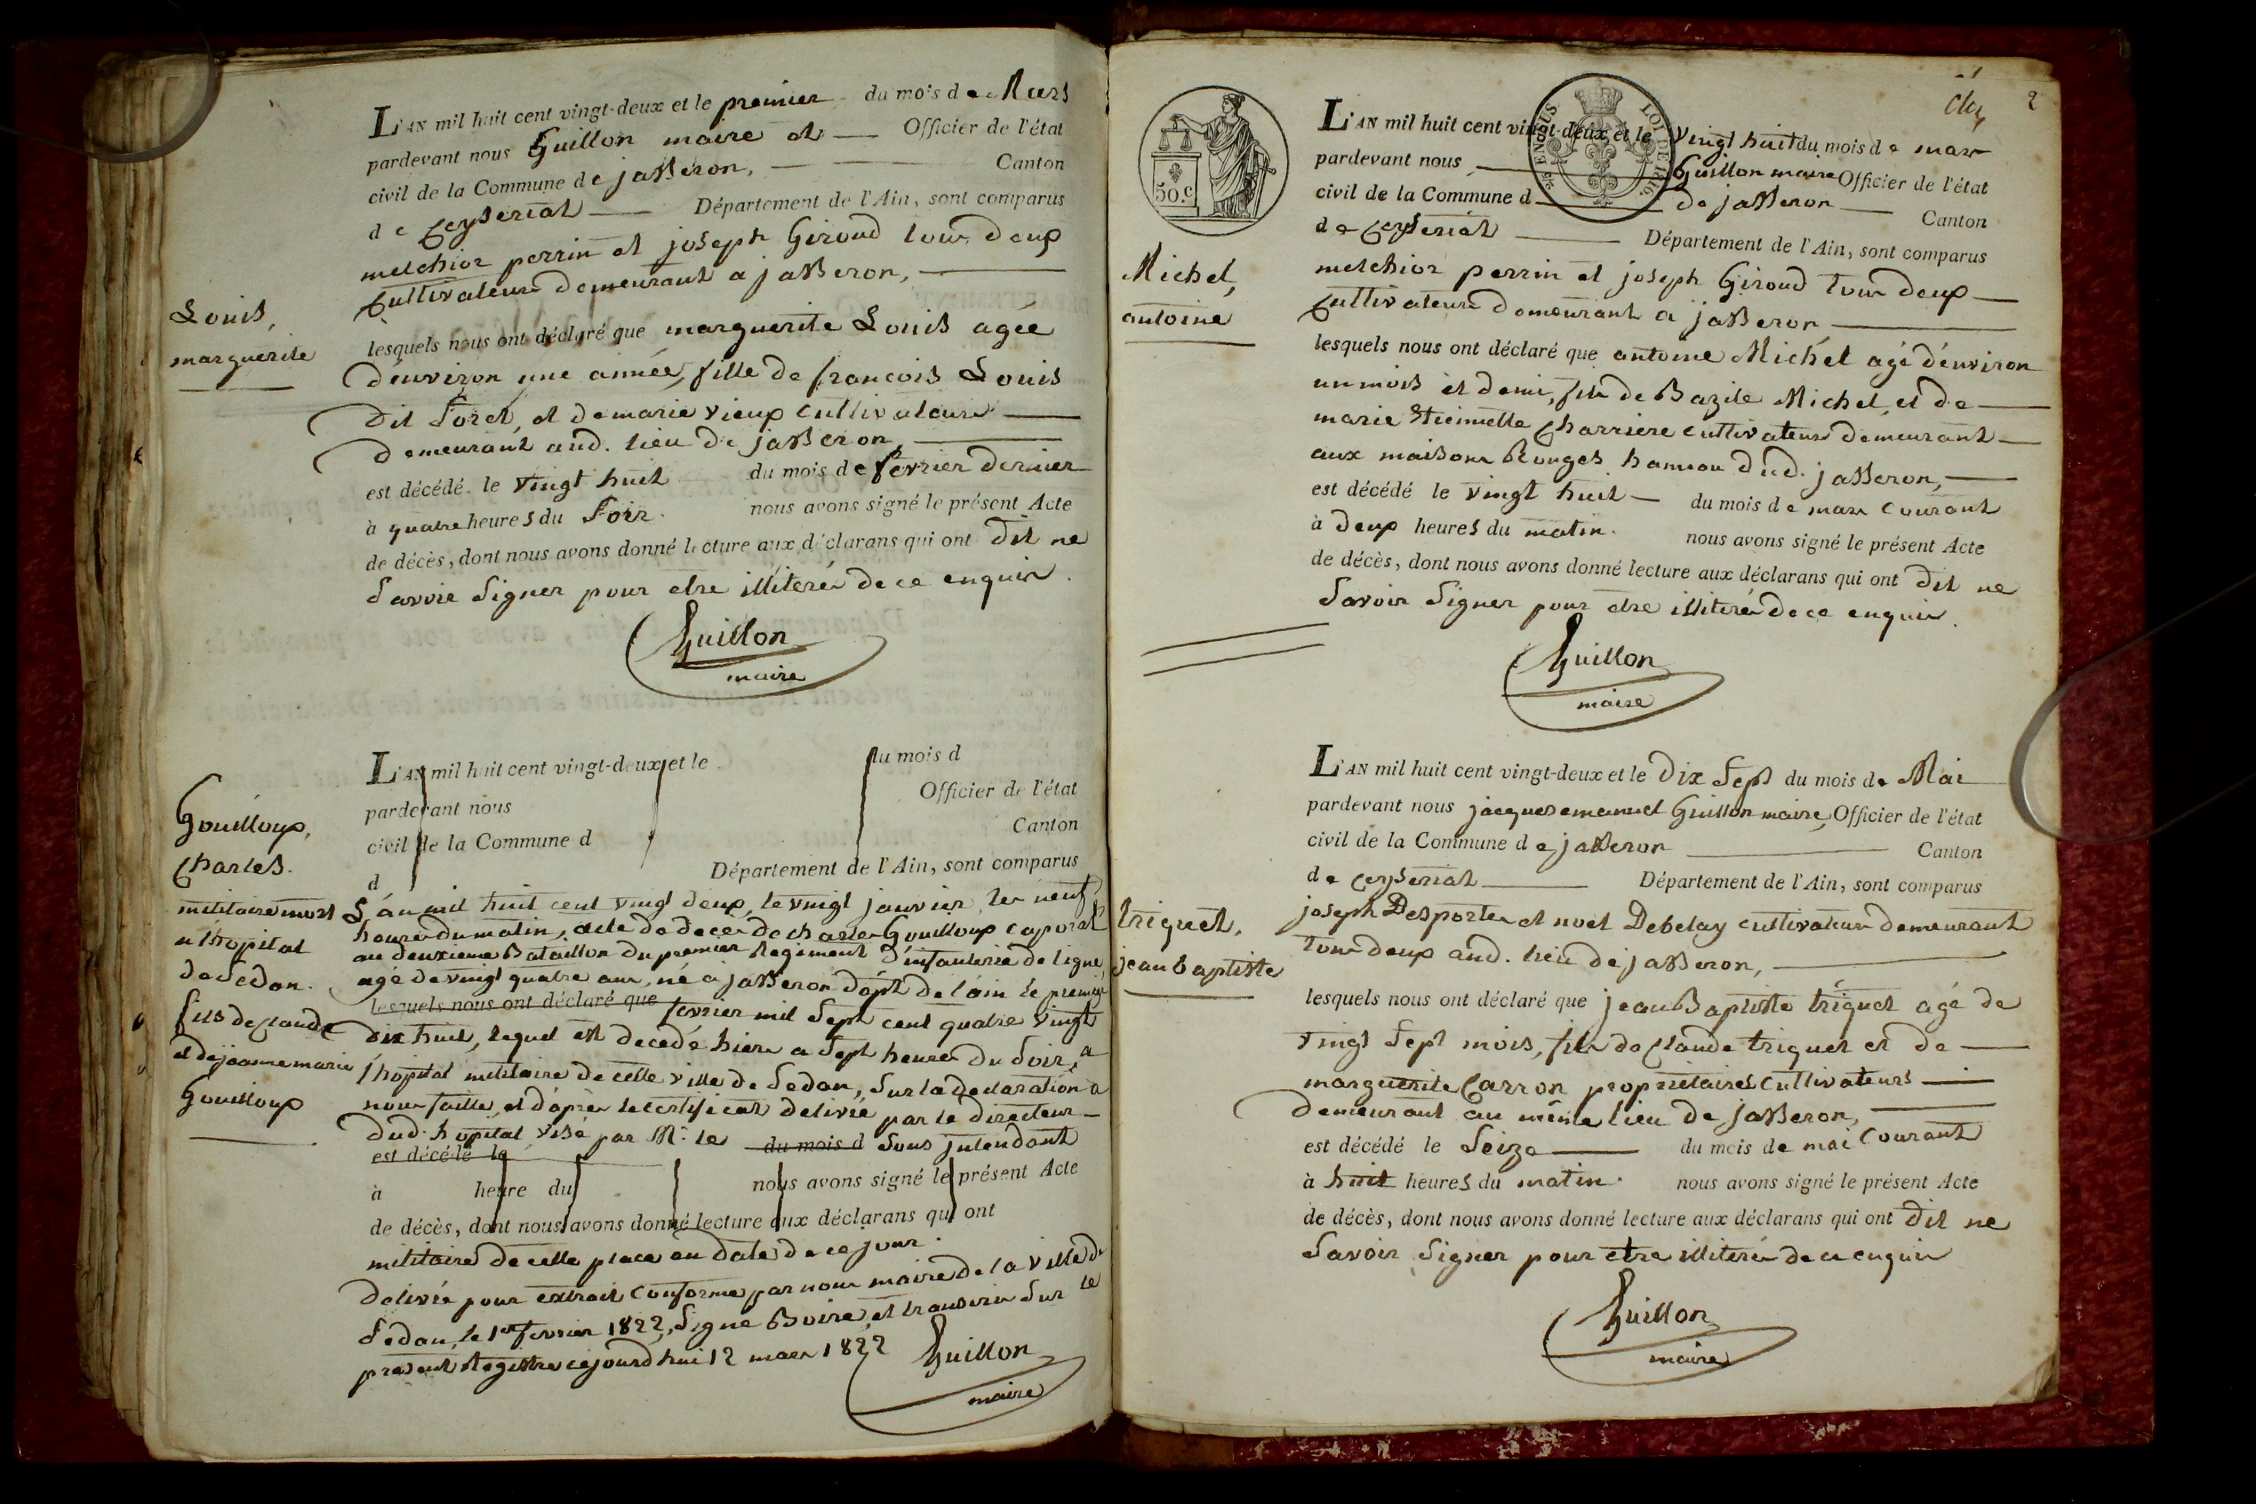 Louis,
marguerite
L'AN mil huit cent vingt-deux et le premier du mois de Mars
pardevant nous Guillon maire et Officier de l'état
civil de la Commune de jasseron, Canton
de Ceyseriat Département de l'Ain, sont comparus
melchior perrin et joseph Giroud tous deux
Cultivateurs demeurant a jasseron,
lesquels nous ont déclaré que marguerite Louis agée
d'environ une année, fille de francois Louis
dit foret, et de marie vieux cultivateurs
demeurant aud. lieu de jasseron,
est décédé le vingt huit du mois de fevrier dernier
à quatre heures du Soir. nous avons signé le présent Acte
de décès, dont nous avons donné lecture aux déclarans qui ont dit ne
Savoir Signer pour etre illiterés de ce enquis.
Guillon
maire
Gouilloux,
Charles.
militaire mort
a l'hopital
de Sedan.
fils de Claude
et de jeanne marie
Gouilloux
L'AN mil huit cent vingt-deux et le du mois d
pardevant nous Officier de l'état
civil de la Commune d Canton
d Département de l'Ain, sont comparus
L'an mil huit cent vingt deux, le vingt janvier, les neuf
heures du matin, acte de decès de charles Gouilloux caporal
au deuxieme Bataillon du premier Regiment d'infanterie de ligne
agé de vingt quatre ans, né a jasseron dépt. de l'ain le premier
lesquels nous ont déclaré que fevrier mil Sept cent quatre vingt
dix huit, lequel est decedé hier a Sept heures du Soir, a
l'hopital militaire de cette ville de Sedan, Sur la declaration a
nous faitte, et d'après le certificat delivré par le directeur
dud. hopital visé par Mr. le du mois d Sous jntendant
est décédé le
à heure du nous avons signé le présent Acte
de décès, dont nous avons donné lecture aux déclarans qui ont
militaire de cette place en date de ce jour.
delivré pour extrait Conforme par nous maire de la ville de
Sedan, le 1er fevrier 1822, Signé Boire, et transcrit Sur le
present Registre cejourd'hui 12 mars 1822
Guillon
maire
2
50.c
LOI DE 1816.
Michel,
antoine
L'AN mil huit cent vingt-deux et le vingt huit du mois de mars
pardevant nous Guillon maire Officier de l'état
civil de la Commune d de jasseron Canton
de Ceyseriat Département de l'Ain, sont comparus
melchior perrin et joseph Giroud tous deux
Cultivateurs demeurant a jasseron
lesquels nous ont déclaré que antoine Michel agé d'environ
un mois et demi, fils de Bazile Michel, et de
marie Etiennette Charriere cultivateurs demeurant
aux maisons Rouges hameau dud. jasseron,
est décédé le vingt huit du mois de mars Courant
à deux heures du matin. nous avons signé le présent Acte
de décès, dont nous avons donné lecture aux déclarans qui ont dit ne
Savoir Signer pour etre illiterés de ce enquis.
Guillon
maire
triquet,
jean Baptiste
L'AN mil huit cent vingt-deux et le dix Sept du mois de Mai
pardevant nous jacques emanuel Guillon maire, Officier de l'état
civil de la Commune de jasseron Canton
de ceyseriat Département de l'Ain, sont comparus
joseph Desportes et noel Debelay cultivateurs demeurant
tous deux aud. lieu de jasseron,
lesquels nous ont déclaré que jean Baptiste triquet agé de
vingt Sept mois, fils de Claude triquet et de
marguerite Carron propriétaires cultivateurs
demeurant au même lieu de jasseron,
est décédé le Seize du mois de mai Courant
à huit heures du matin. nous avons signé le présent Acte
de décès, dont nous avons donné lecture aux déclarans qui ont dit ne
Savoir Signer pour etre illiterés de ce enquis
Guillon
maire